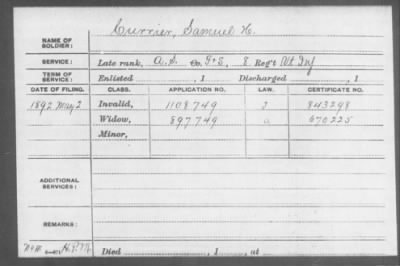 NAME OF SOLDIER: Currier, Samuel H.
SERVICE: Late rank, A.S. Co. F+S, 8 Reg't Vt Inf
TERM OF SERVICE: Enlisted , 1 Discharged , 1
DATE OF FILING. CLASS. APPLICATION NO. LAW. CERTIFICATE NO.
1892 May 2 Invalid, 1108749 J 843298
Widow, 897749 a 670225
Minor,
ADDITIONAL SERVICES:
REMARKS:
Died , 1 , at